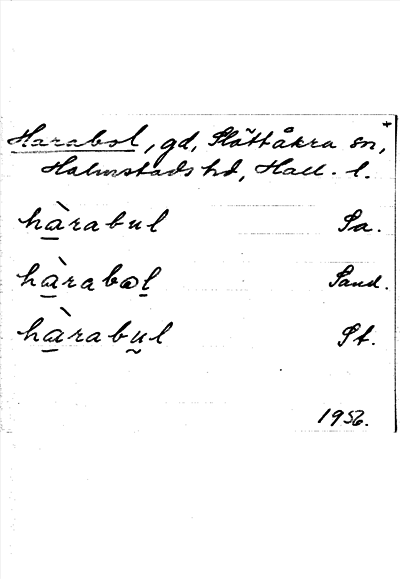 Harabol, gd, Slättåkra sn,
Halmstads hd, Hall. l.
hàrabul Sa.
hàrabɷl Sand.
hàrabul St.
1956.